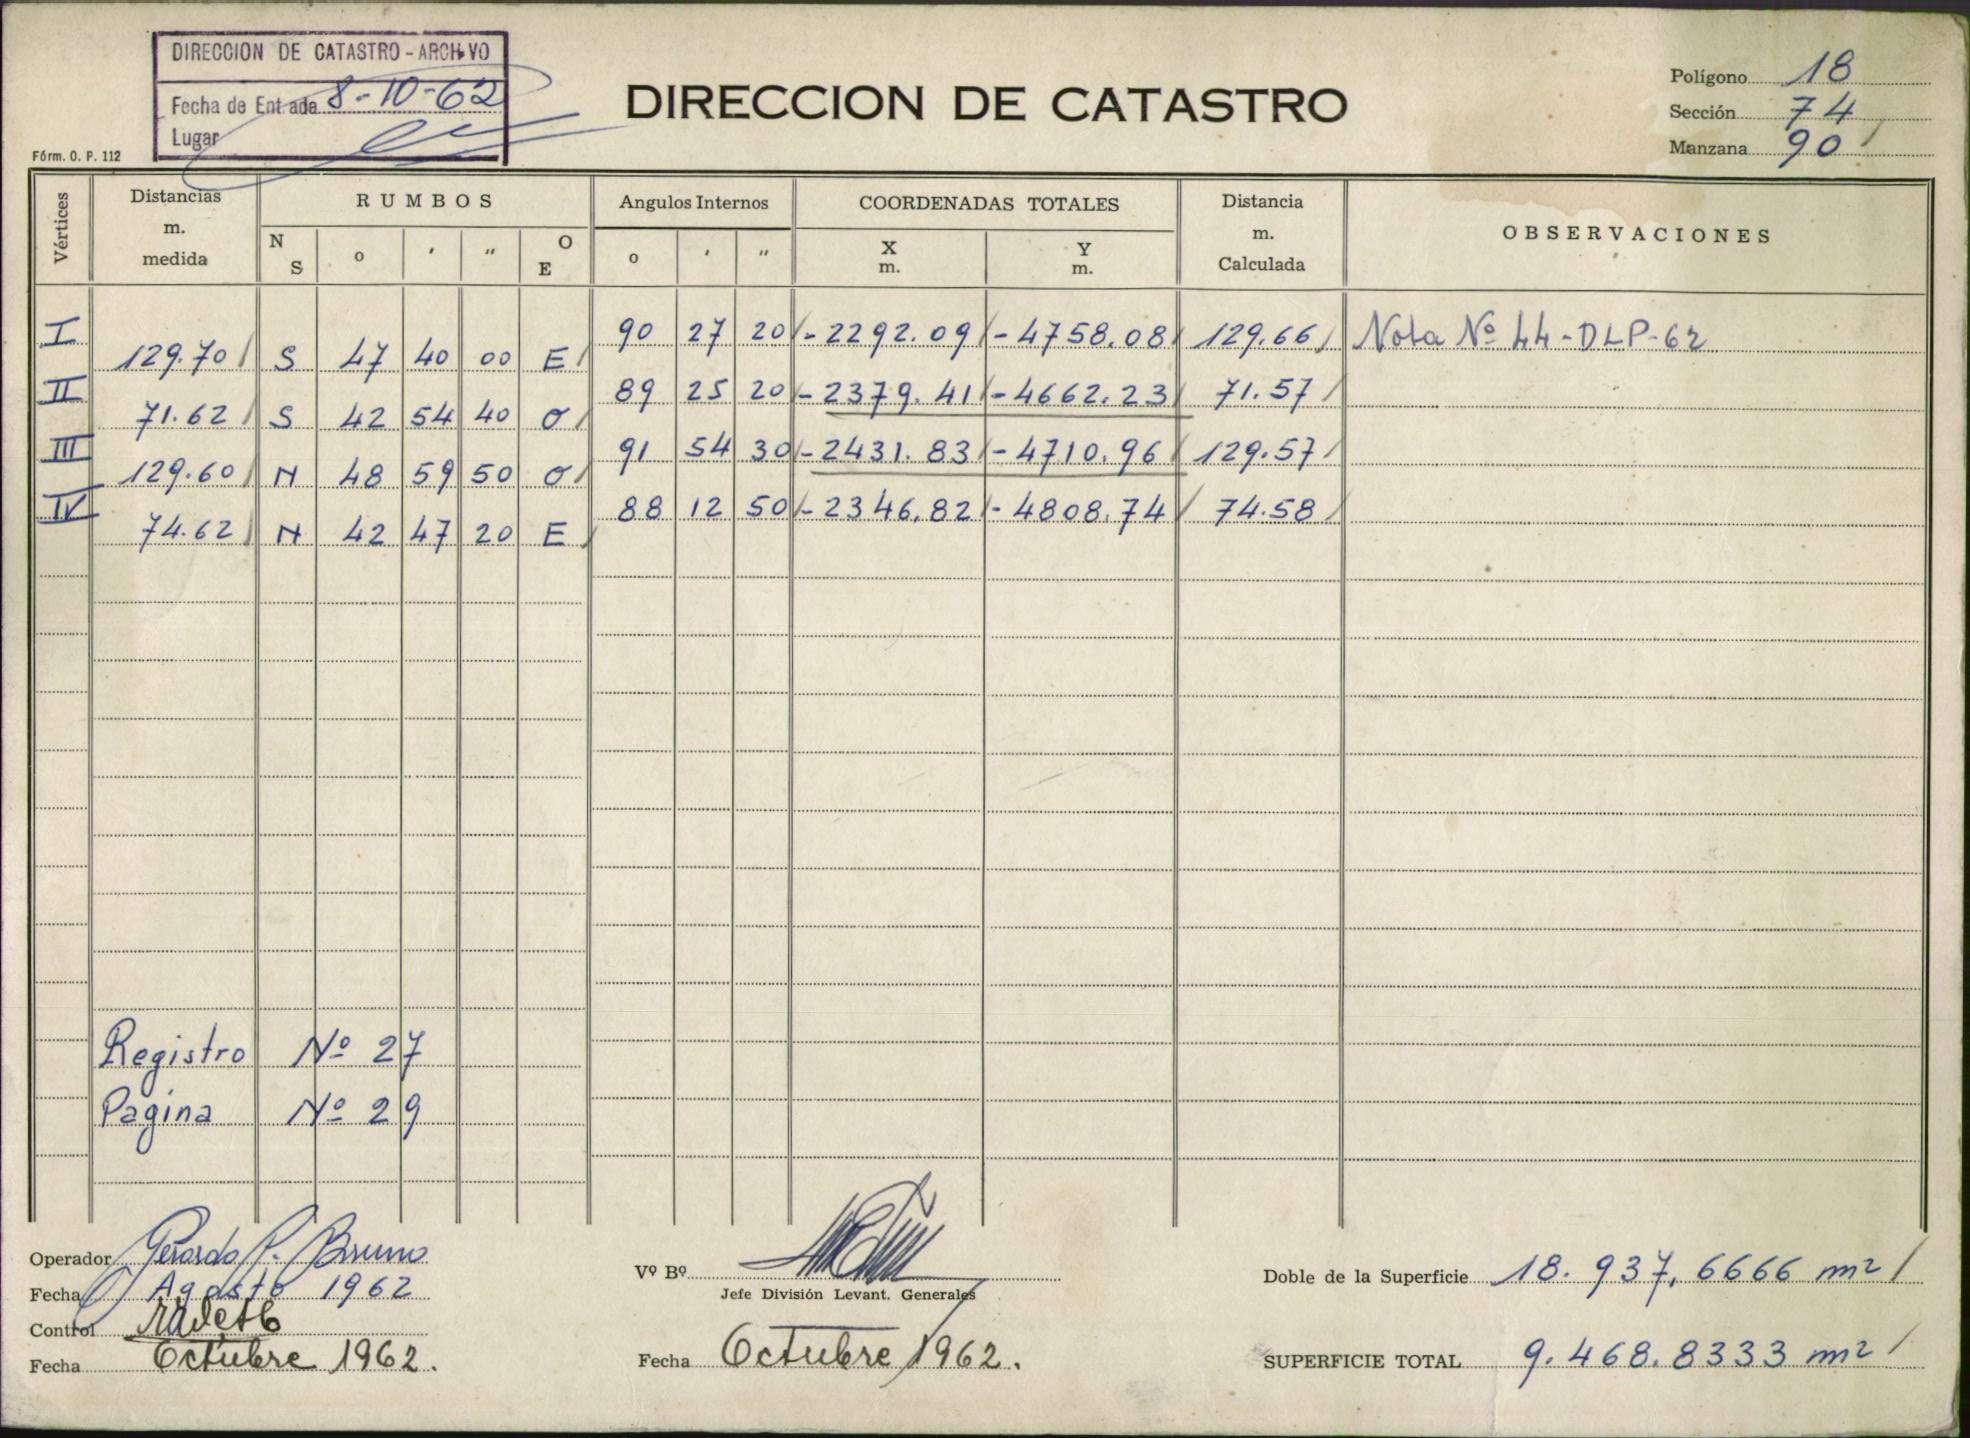 DIRECCION DE CATASTRO - ARCHIVO
Fecha de Entrada 8-10-62
Lugar
Fórm. O. P. 112
DIRECCION DE CATASTRO
Polígono 18
Sección 74
Manzana 90
Vértices
Distancias m. medida
RUMBOS
Angulos Internos
COORDENADAS TOTALES
Distancia m. Calculada
OBSERVACIONES
N S o ′ ″ O E o ′ ″ X m. Y m.
I 90 27 20 -2292.09 -4758.08 129.66 Nota Nº 44-DLP-62
129.70 S 47 40 00 E
II 89 25 20 -2379.41 -4662.23 71.57
71.62 S 42 54 40 O
III 91 54 30 -2431.83 -4710.96 129.57
129.60 N 48 59 50 O
IV 88 12 50 -2346.82 -4808.74 74.58
74.62 N 42 47 20 E
Registro Nº 27
Pagina Nº 29
Operador Gerardo P. Bruno
Fecha Agosto 1962
Control
Fecha Octubre 1962.
Vº Bº
Jefe División Levant. Generales
Fecha Octubre 1962.
Doble de la Superficie 18.937,6666 m²
SUPERFICIE TOTAL 9.468.8333 m²